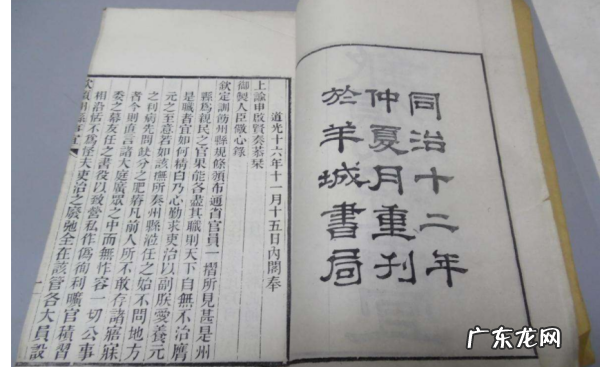 同治十二年
仲夏月重刊
於羊城書局
道光十六年十一月十五日內閣奉
上諭申啟賢奏恭栞
御製人臣儆心錄
欽定訓飭州縣規條頒布通省官員一摺所見甚是州
縣爲親民之官果能各盡其職則天下自無不治膺
是職者宜如何精白乃心勤求吏治以副朕愛養元
元之至意若如該撫所奏州縣涖任之始不問地方
之利病先問缺分之肥瘠凡前人所不敢存諸寤寐
者今則直言諸大庭廣眾之中而無怍容一切公事
委之幕友任之書役以致營私作僞徇利曠官積習
相沿恬不爲怪夫吏治之廢弛全在該管各大員設
广东龙网